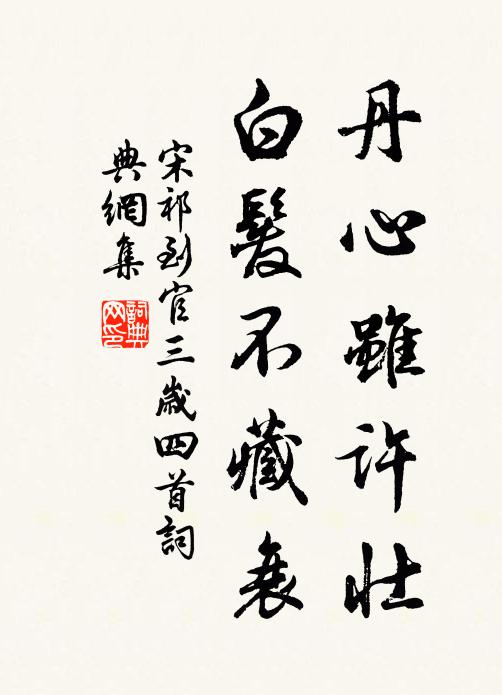 丹心雖許壯
白髮不藏衰
宋祁到官三歲四首詞
典網集
詞典網印